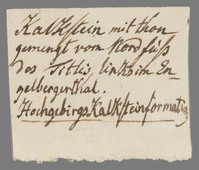 Kalkstein mit thon
gemengt vom Nord fuß
des Titlis, links im En-
gelbergerthal.
HochgebirgsKalksteinformation